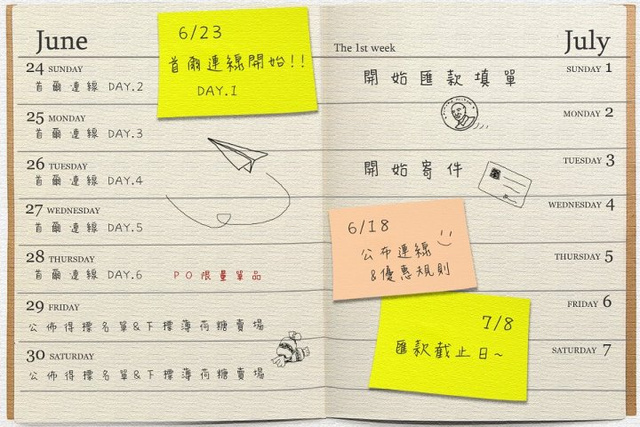 June
6/23
首爾連線開始!!
DAY.1
24 SUNDAY
首爾連線 DAY.2
25 MONDAY
首爾連線 DAY.3
26 TUESDAY
首爾連線 DAY.4
27 WEDNESDAY
首爾連線 DAY.5
28 THURSDAY
首爾連線 DAY.6 PO限量單品
29 FRIDAY
公佈得標名單&下標薄荷糖賣場
30 SATURDAY
公佈得標名單&下標薄荷糖賣場
The 1st week
July
SUNDAY 1
開始匯款填單
MONDAY 2
TUESDAY 3
開始寄件
WEDNESDAY 4
6/18
公布連線
&優惠規則
THURSDAY 5
FRIDAY 6
7/8
匯款截止日~
SATURDAY 7